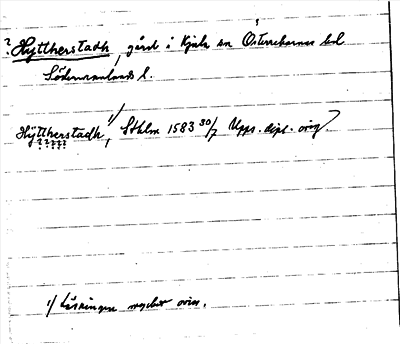 ? Hyttherstadh, gård i Kjula sn Österrekarnes hd
Södermanlands l.
Hÿttherstadh 1/, Sthlm 1583 30/7 Upps. dipl. orig.
1/ Läsningen mycket oviss.